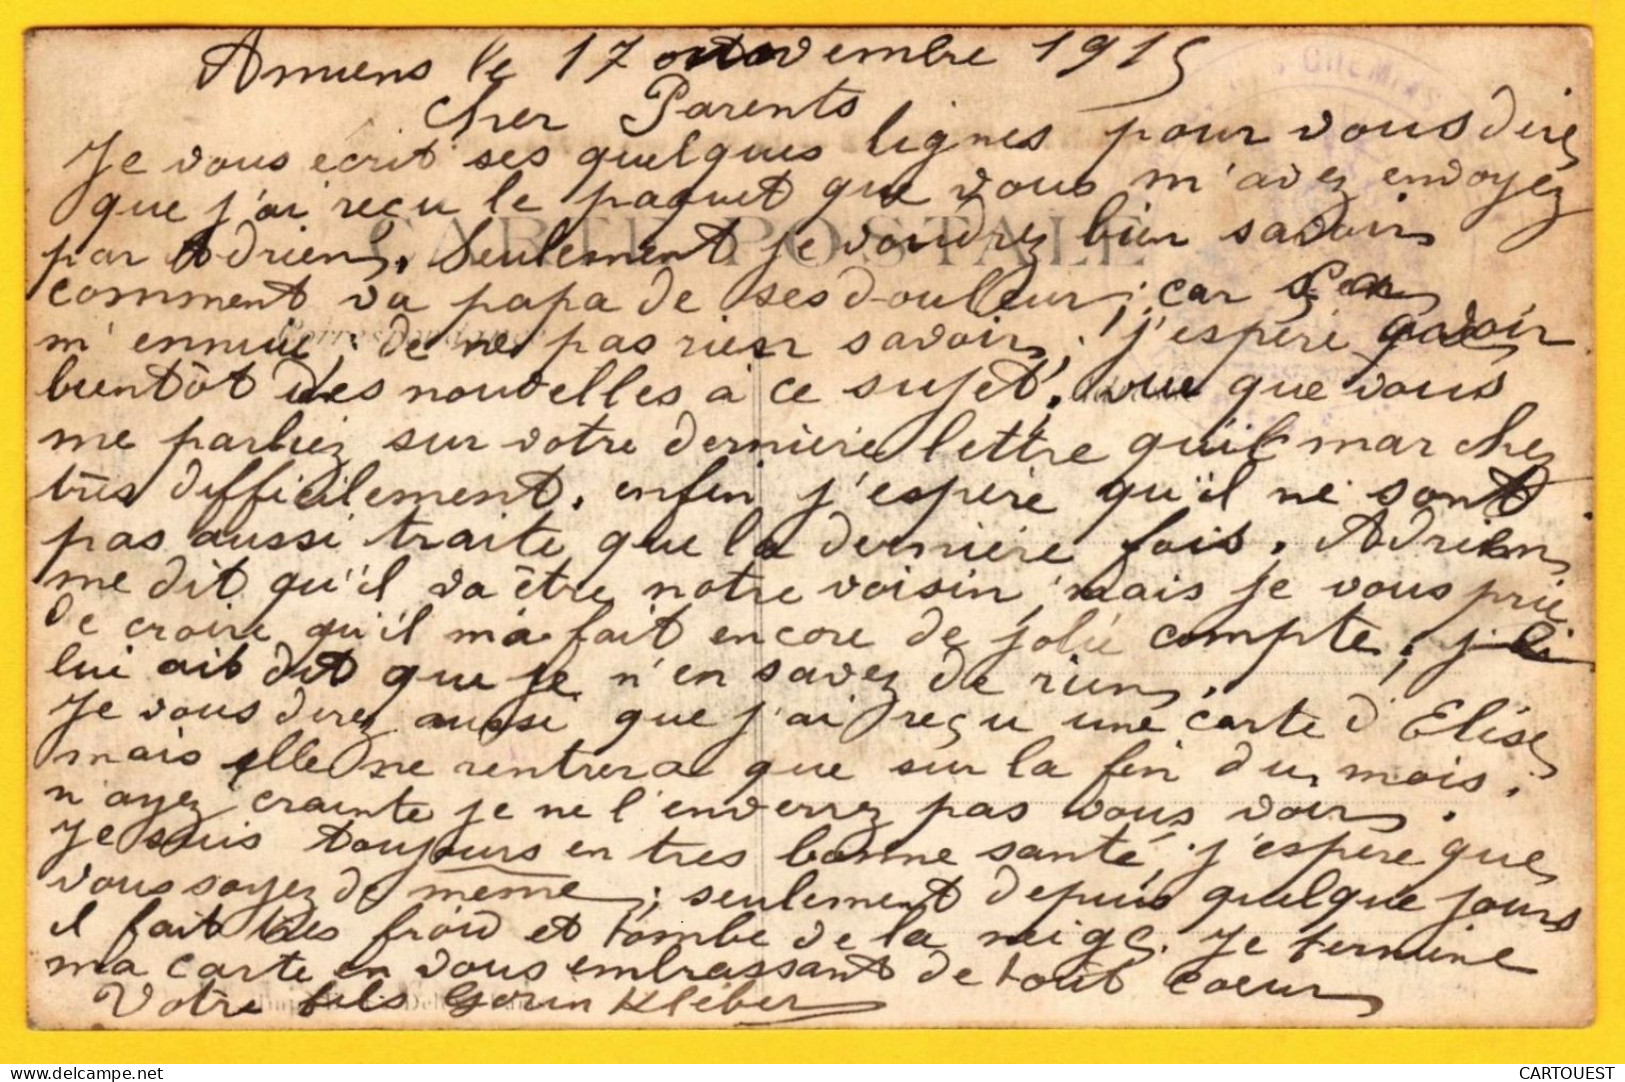 Amiens le 17 novembre 1915
cher Parents
Je vous écrit ses quelques lignes pour vous direz
que j'ai reçu le paquet que vous m'avez envoyez
par Adrien, Seulement je voudrez bien savoir
comment va papa de ses douleur; car
m'ennuie; de ne pas rien savoir; j'espère avoir
bientôt des nouvelles à ce sujet, vue que vous
me parliez sur votre dernière lettre qu'il marchez
très difficilement. enfin j'espère qu'il ne sont
pas aussi traite que la dernière fois. Adrien
me dit qu'il va être notre voisin, mais je vous prie
de croire qu'il m'a fait encore de jolie compte;
lui ait dit que je n'en savez de rien.
Je vous direz aussi que j'ai reçu une carte d'Elise
mais elle ne rentrera que sur la fin du mois.
n'ayez crainte je ne l'enverrez pas vous voir.
Je suis toujours en très bonne santé, j'espère que
vous soyez de même; seulement depuis quelque jours
il fait très froid et tombe de la neige. Je termine
ma carte en vous embrassant de tout coeur
Votre fils Gorin Kléber
CARTE POSTALE
Correspondance
CHEMINS
https://www.delcampe.net
CARTOUEST